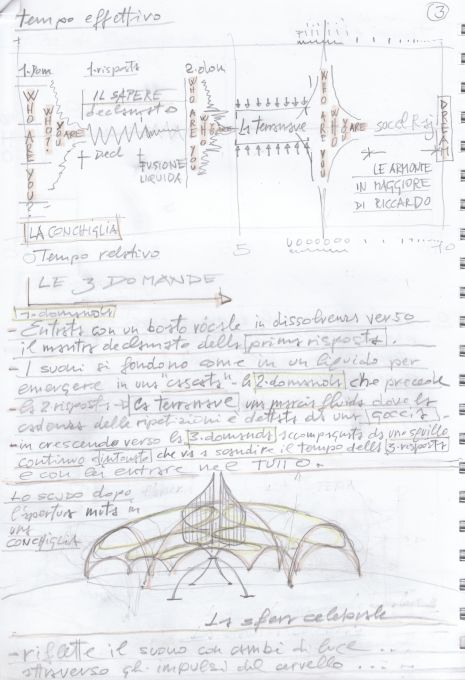 tempo effettivo
3
1. Dom
1. risposta
2. dom
IL SAPERE
declamato
WHO ARE YOU?
WHO?
ARE
Decl
FUSIONE
LIQUIDA
WHO ARE YOU
WHO
ARE
La terranave
WHO ARE YOU
WHO
YOU ARE
DREAM
LE ARMONIE
IN MAGGIORE
DI RICCARDO
LA CONCHIGLIA
0 Tempo relativo
5
10
LE 3 DOMANDE
1. domanda
- Entrata con un vocale in dissolvenza verso
il mantra declamato della prima risposta.
- I suoni si fondono come in un liquido per
emergere in una cascata - la 2 domanda che precede
la 2 risposta - la terranave una marcia fluida dove la
cadenza delle ripetizioni è dettata da una goccia.
- in crescendo verso la 3. domanda accompagnata da uno squillo
continuo distante che va a scandire il tempo della 3. risposta
e con lei entrare nel TUTTO.
Lo scudo dopo
l'apertura muta in
una
CONCHIGLIA
La sfera celebrale
- riflette il suono con cambi di luce ...
attraverso gli impulsi del cervello ....